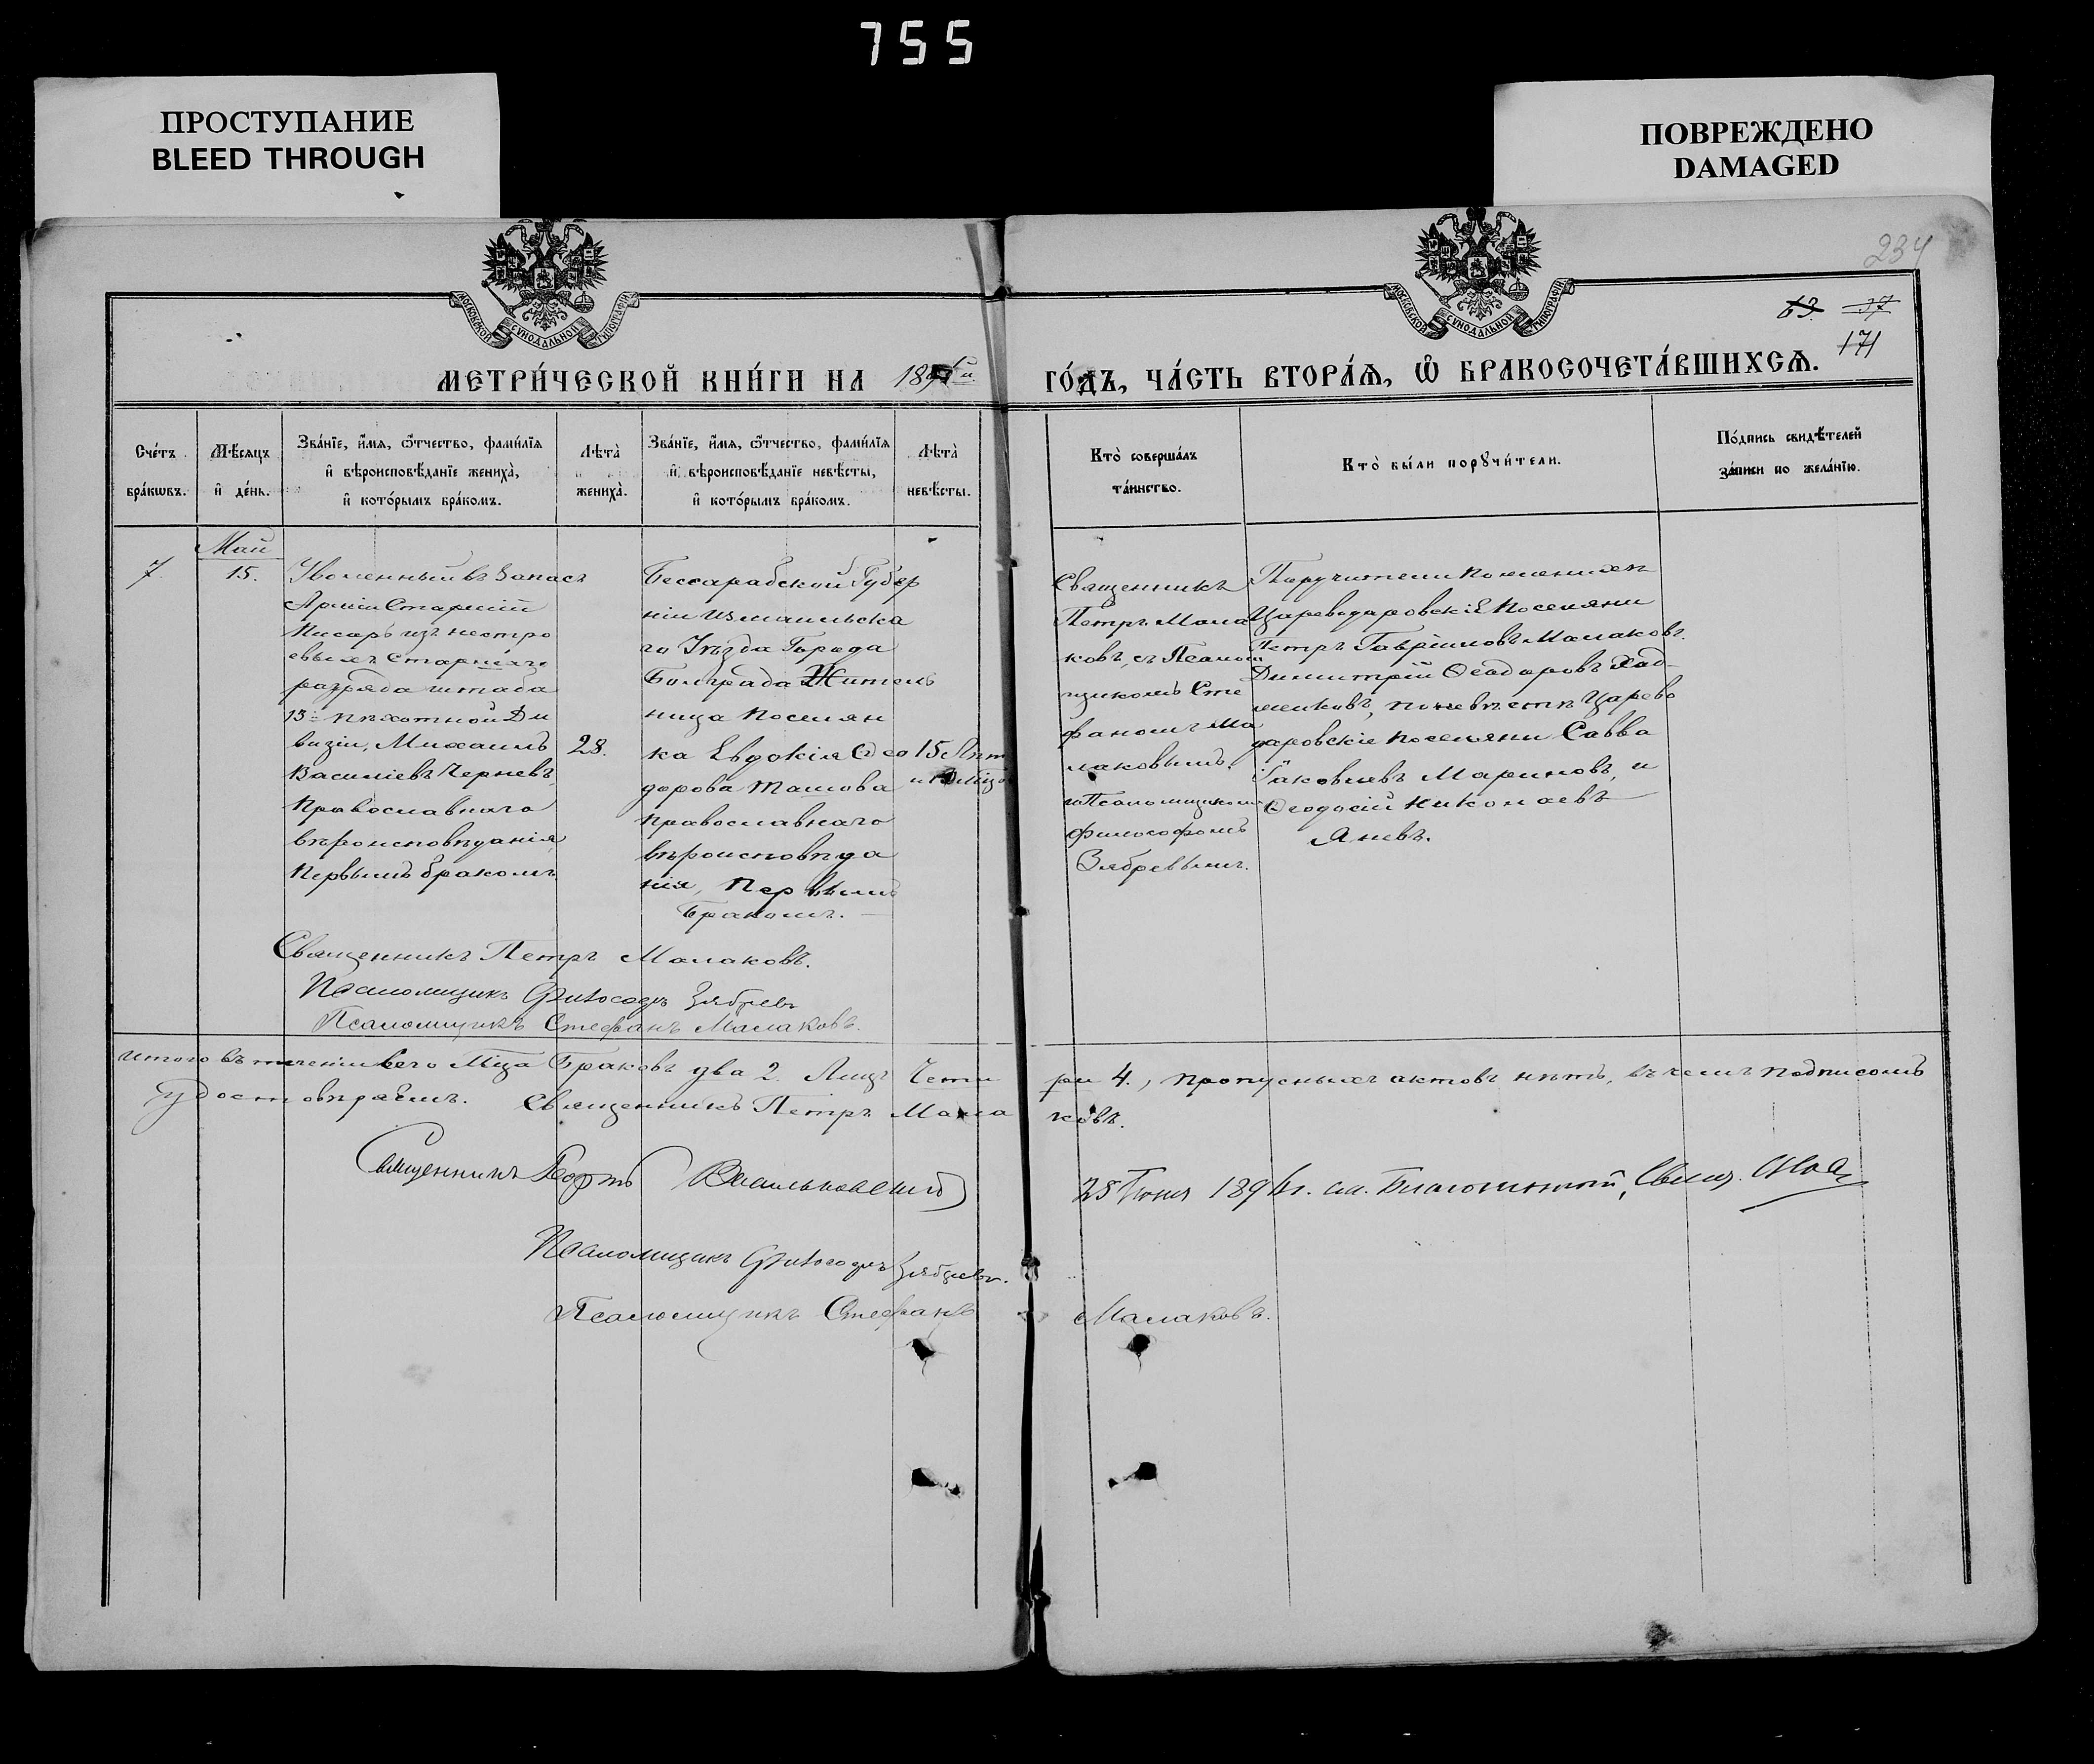 755
ПРОСТУПАНИЕ
BLEED THROUGH
ПОВРЕЖДЕНО
DAMAGED
МОСКОВСКОЙ СУНОДАЛЬНОЙ ТИПОГРАФІИ
МОСКОВСКОЙ СУНОДАЛЬНОЙ ТИПОГРАФІИ
234
63 37
171
МЕТРИ́ЧЕСКОЙ КНИ́ГИ НА 189
ГО́ДЪ, ЧА́СТЬ ВТОРА́Ѧ, Ѡ҆ БРАКОСОЧЕТА́ВШИХСѦ.
Сче́тъ бра́кѡвъ.
Мѣ́сѧцъ и҆ де́нь.
Зва́нїе, и҆́мѧ, ѻ҆́тчество, фами́лїѧ
и҆ вѣроисповѣ́данїе жениха̀,
и҆ кото́рымъ бра́комъ.
Лѣта̀ жениха̀.
Зва́нїе, и҆́мѧ, ѻ҆́тчество, фами́лїѧ
и҆ вѣроисповѣ́данїе невѣ́сты,
и҆ кото́рымъ бра́комъ.
Лѣта̀ невѣ́сты.
Кто̀ соверша́лъ
та́инство.
Кто̀ бы́ли порꙋчи́тели.
По́дпись свидѣ́телей
за́писи по жела́нїю.
Май
7. 15.
Уволенный въ Запасъ
Арміи Старшій
Писарь изъ нестро
евыхъ старшаго
разряда штаба
15й пѣхотной Ди
визіи, Михаилъ
Василіевъ Черневъ,
Православнаго
вѣроисповѣданія,
Первымъ бракомъ.
28.
Бессарабской Губер
ніи Измаильска
го Уѣзда Города
Болграда Житель
ница Поселян
ка Евдокія Ѳео
дорова Ташова
Православнаго
вѣроисповѣда
нія, Первымъ
Бракомъ.
15 лѣт
Священникъ
Петръ Мала
ковъ, съ Псалом
щикомъ Сте
фаномъ Ма
лаковымъ.
Псаломщикомъ
Философомъ
Зябревымъ.
Цареводаровскіе Поселяни
Петръ Гавриловъ Малаковъ.
Димитрій Ѳеодоровъ Хад
жиковъ, по невѣстѣ Царево
даровскіе поселяни Савва
Іаковлевъ Мариновъ, и
Ѳеодосій Николаевъ
Яневъ.
Священникъ Петръ Малаковъ.
Псаломщикъ Философъ Зябревъ
Псаломщикъ Стефанъ Малаковъ.
Итого въ теченіи сего Мѣца Браковъ два 2. Лицъ Четы
ри 4., пропускныхъ актовъ нѣтъ, въ чемъ подписомъ
удостовѣряемъ. Священникъ Петръ Мала
ковъ.
Священникъ Георгій Васильковскій
25 Іюня 189 г. сл. Благочинный, Свящ.
Псаломщикъ Философъ Зябревъ.
Псаломщикъ Стефанъ Малаковъ.